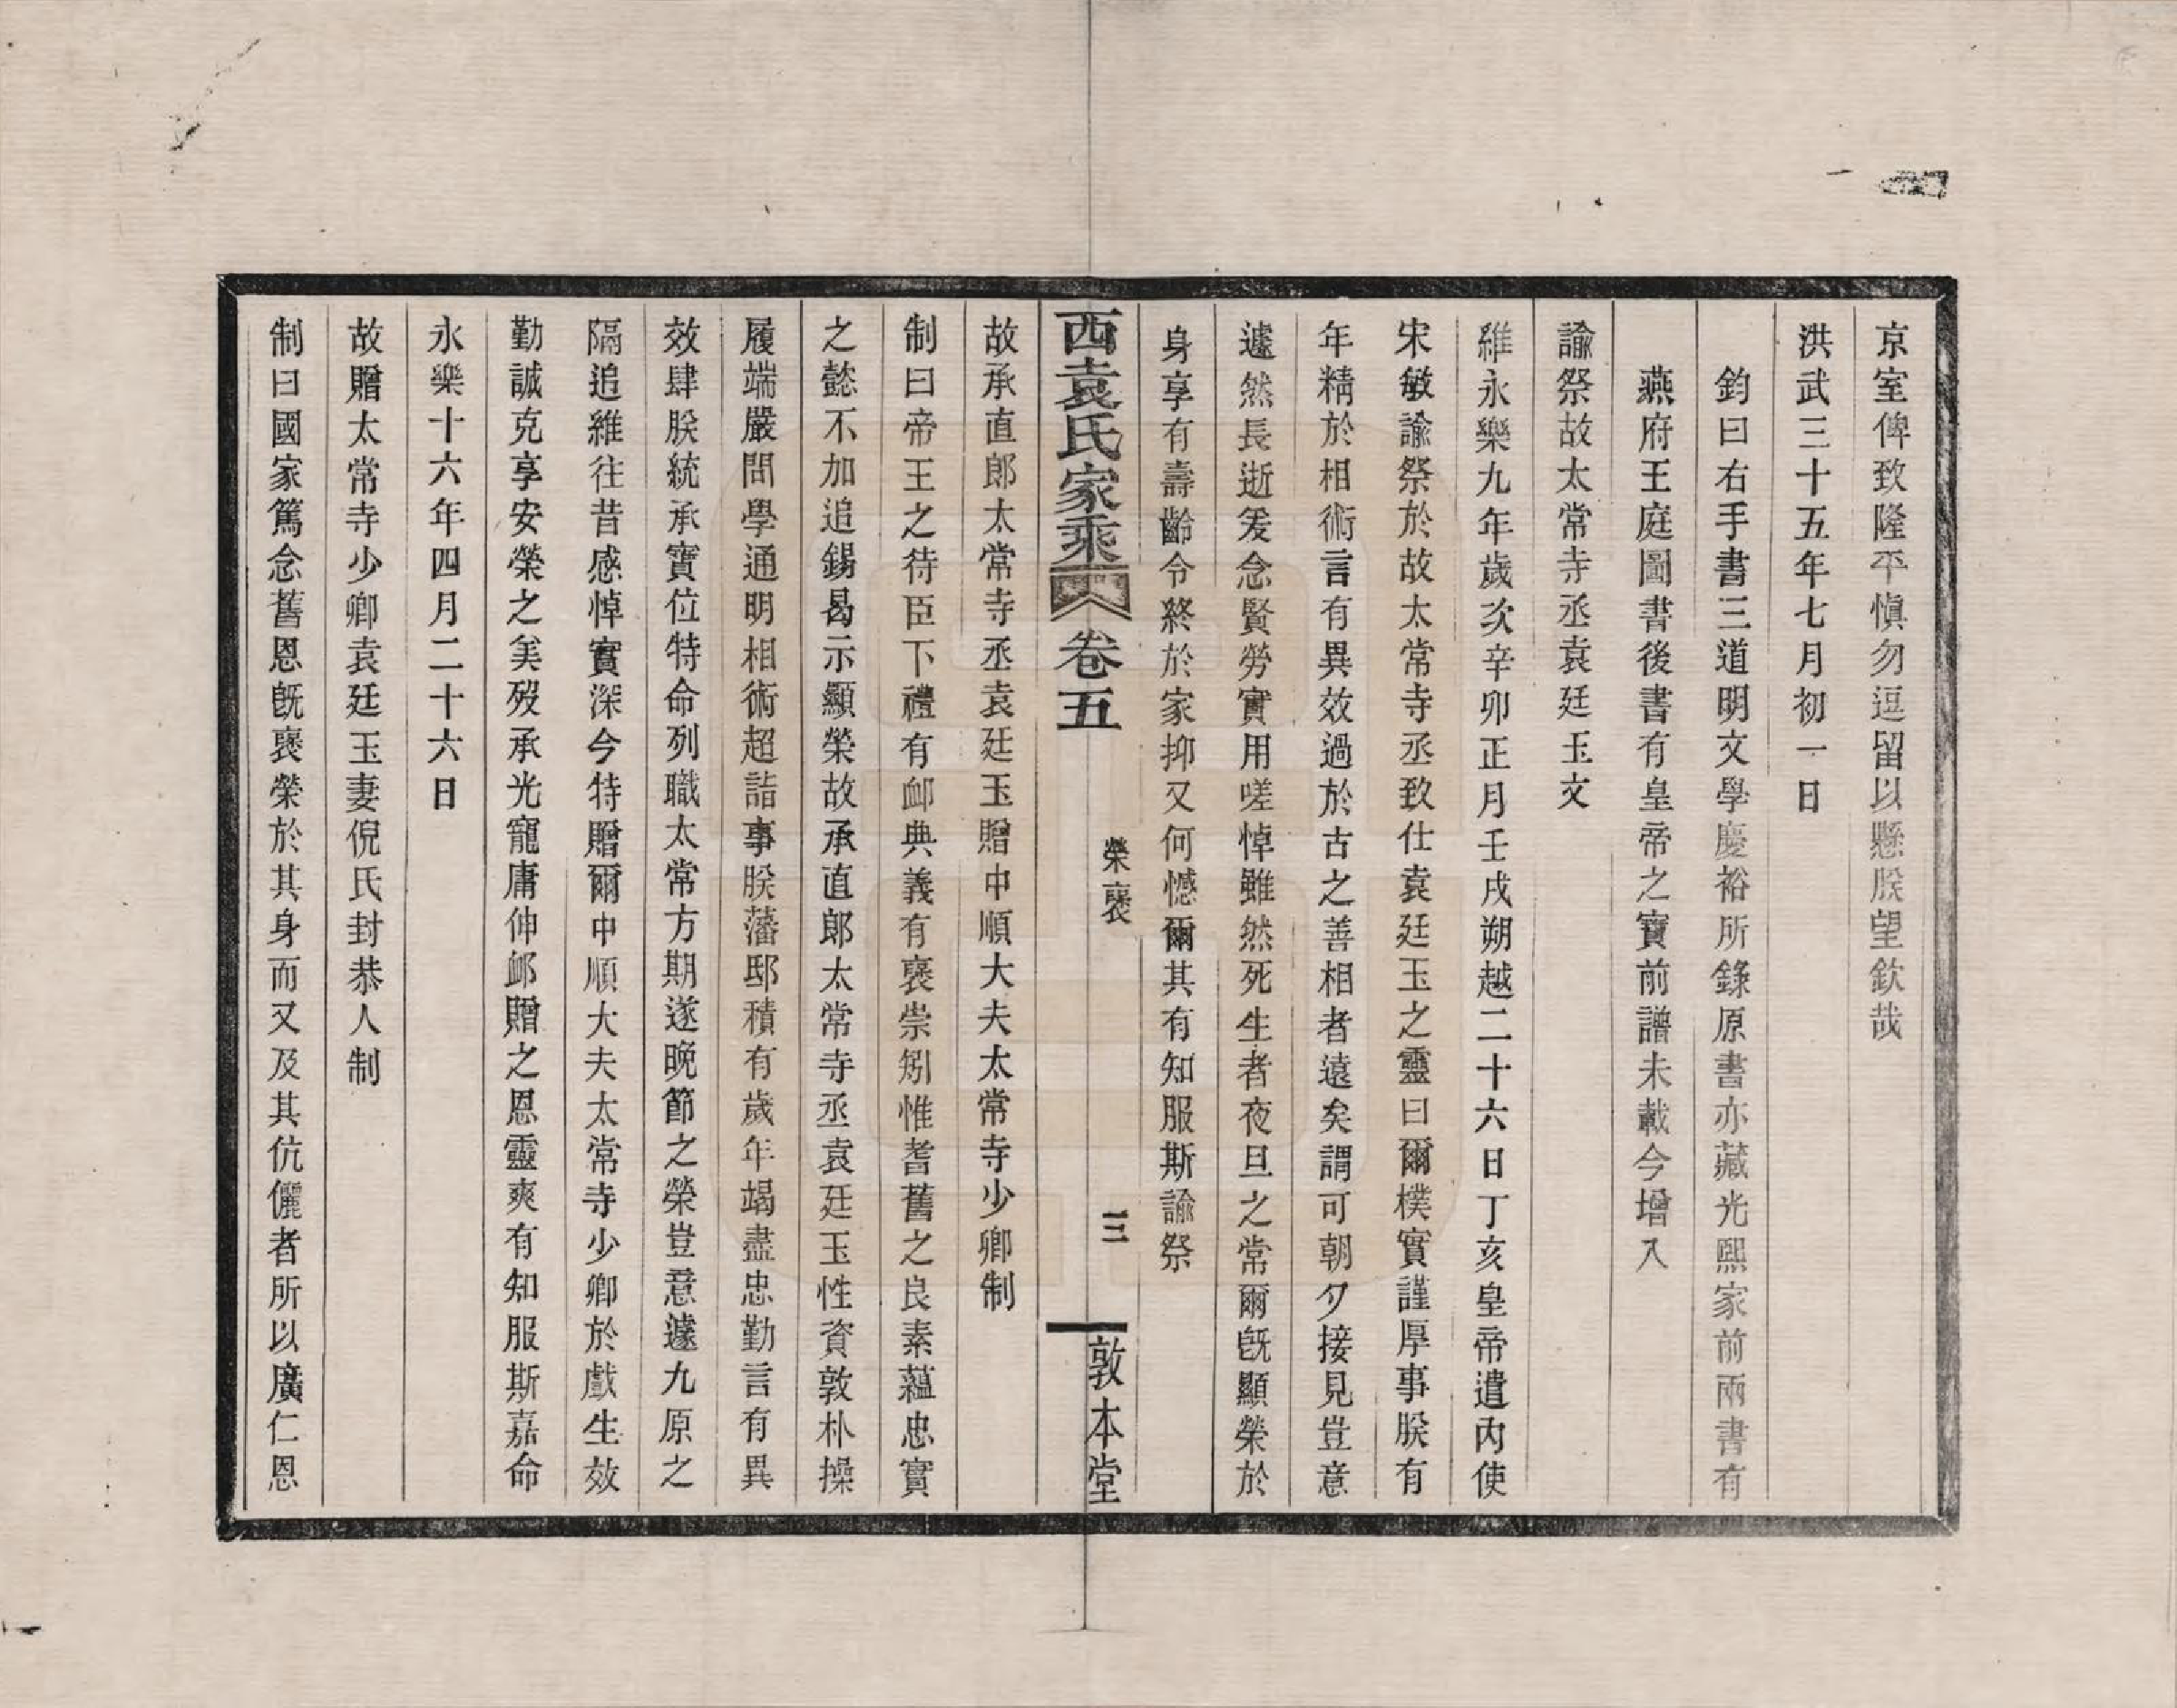 京室俾致隆平愼勿逗留以懸朕望欽哉
洪武三十五年七月初一日
鈞曰右手書三道明文學慶裕所錄原書亦藏光熙家前兩書有
燕府王庭圖書後書有皇帝之寶前譜未載今增入
諭祭故太常寺丞袁廷玉文
維永樂九年歲次辛卯正月壬戌朔越二十六日丁亥皇帝遣內使
宋敏諭祭於故太常寺丞致仕袁廷玉之靈曰爾樸實謹厚事朕有
年精於相術言有異效過於古之善相者遠矣謂可朝夕接見豈意
遽然長逝爰念賢勞實用嗟悼雖然死生者夜旦之常爾旣顯榮於
身享有壽齡令終於家抑又何憾爾其有知服斯諭祭
西袁氏家乘 卷五 榮褒 三 敦本堂
故承直郎太常寺丞袁廷玉贈中順大夫太常寺少卿制
制曰帝王之待臣下禮有卹典義有褒崇矧惟耆舊之良素蘊忠實
之懿不加追錫曷示顯榮故承直郎太常寺丞袁廷玉性資敦朴操
履端嚴問學通明相術超詣事朕藩邸積有歲年竭盡忠勤言有異
效肆朕統承寶位特命列職太常方期遂晚節之榮豈意遽九原之
隔追維往昔感悼實深今特贈爾中順大夫太常寺少卿於戲生效
勤誠克享安榮之美歿承光寵庸伸卹贈之恩靈爽有知服斯嘉命
永樂十六年四月二十六日
故贈太常寺少卿袁廷玉妻倪氏封恭人制
制曰國家篤念舊恩旣褒榮於其身而又及其伉儷者所以廣仁恩